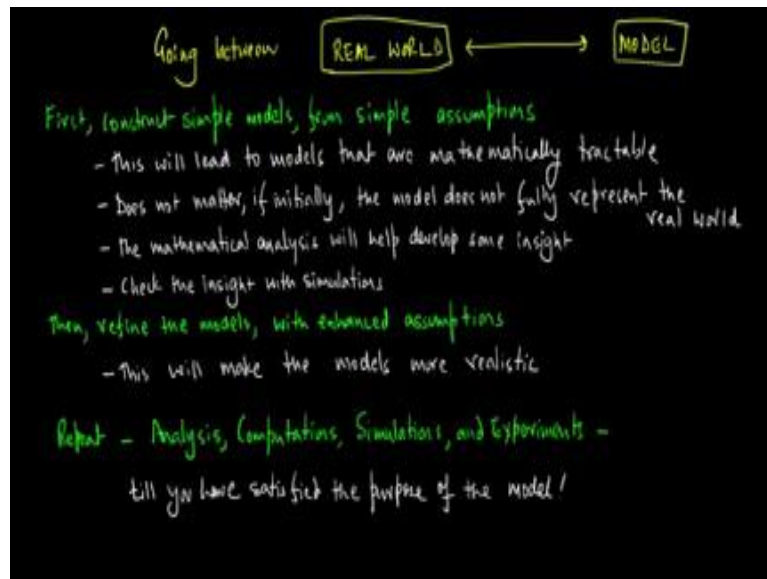 Going between REAL WORLD ⟷ MODEL
First, construct simple models, from simple assumptions
- This will lead to models that are mathematically tractable
- Does not matter, if initially, the model does not fully represent the
real world
- The mathematical analysis will help develop some insight
- Check the insight with simulations
Then, refine the models, with enhanced assumptions
- This will make the models more realistic
Repeat - Analysis, Computations, Simulations, and Experiments -
till you have satisfied the purpose of the model!